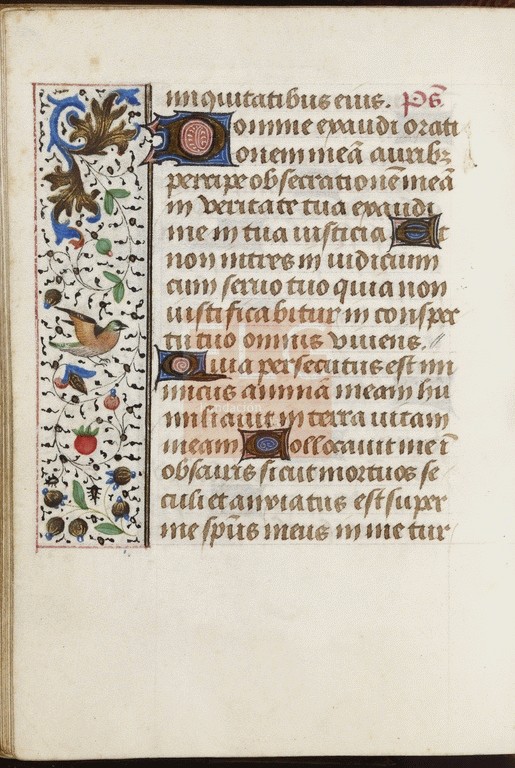 iniquitatibus eius. ps̄
Domine exaudi orati
onem meā auribz
percipe obsecrationē meā
in veritate tua exaudi
me in tua iusticia Et
non intres in iudicium
cum seruo tuo quia non
iustificabitur in conspec
tu tuo omnis viuens.
Quia persecutus est ini
micus animā meam hu
miliauit in terra uitam
meam Collocauit me ī
obscuris sicut mortuos se
culi et anxiatus est super
me spūs meus in me tur
FLG
Fundación